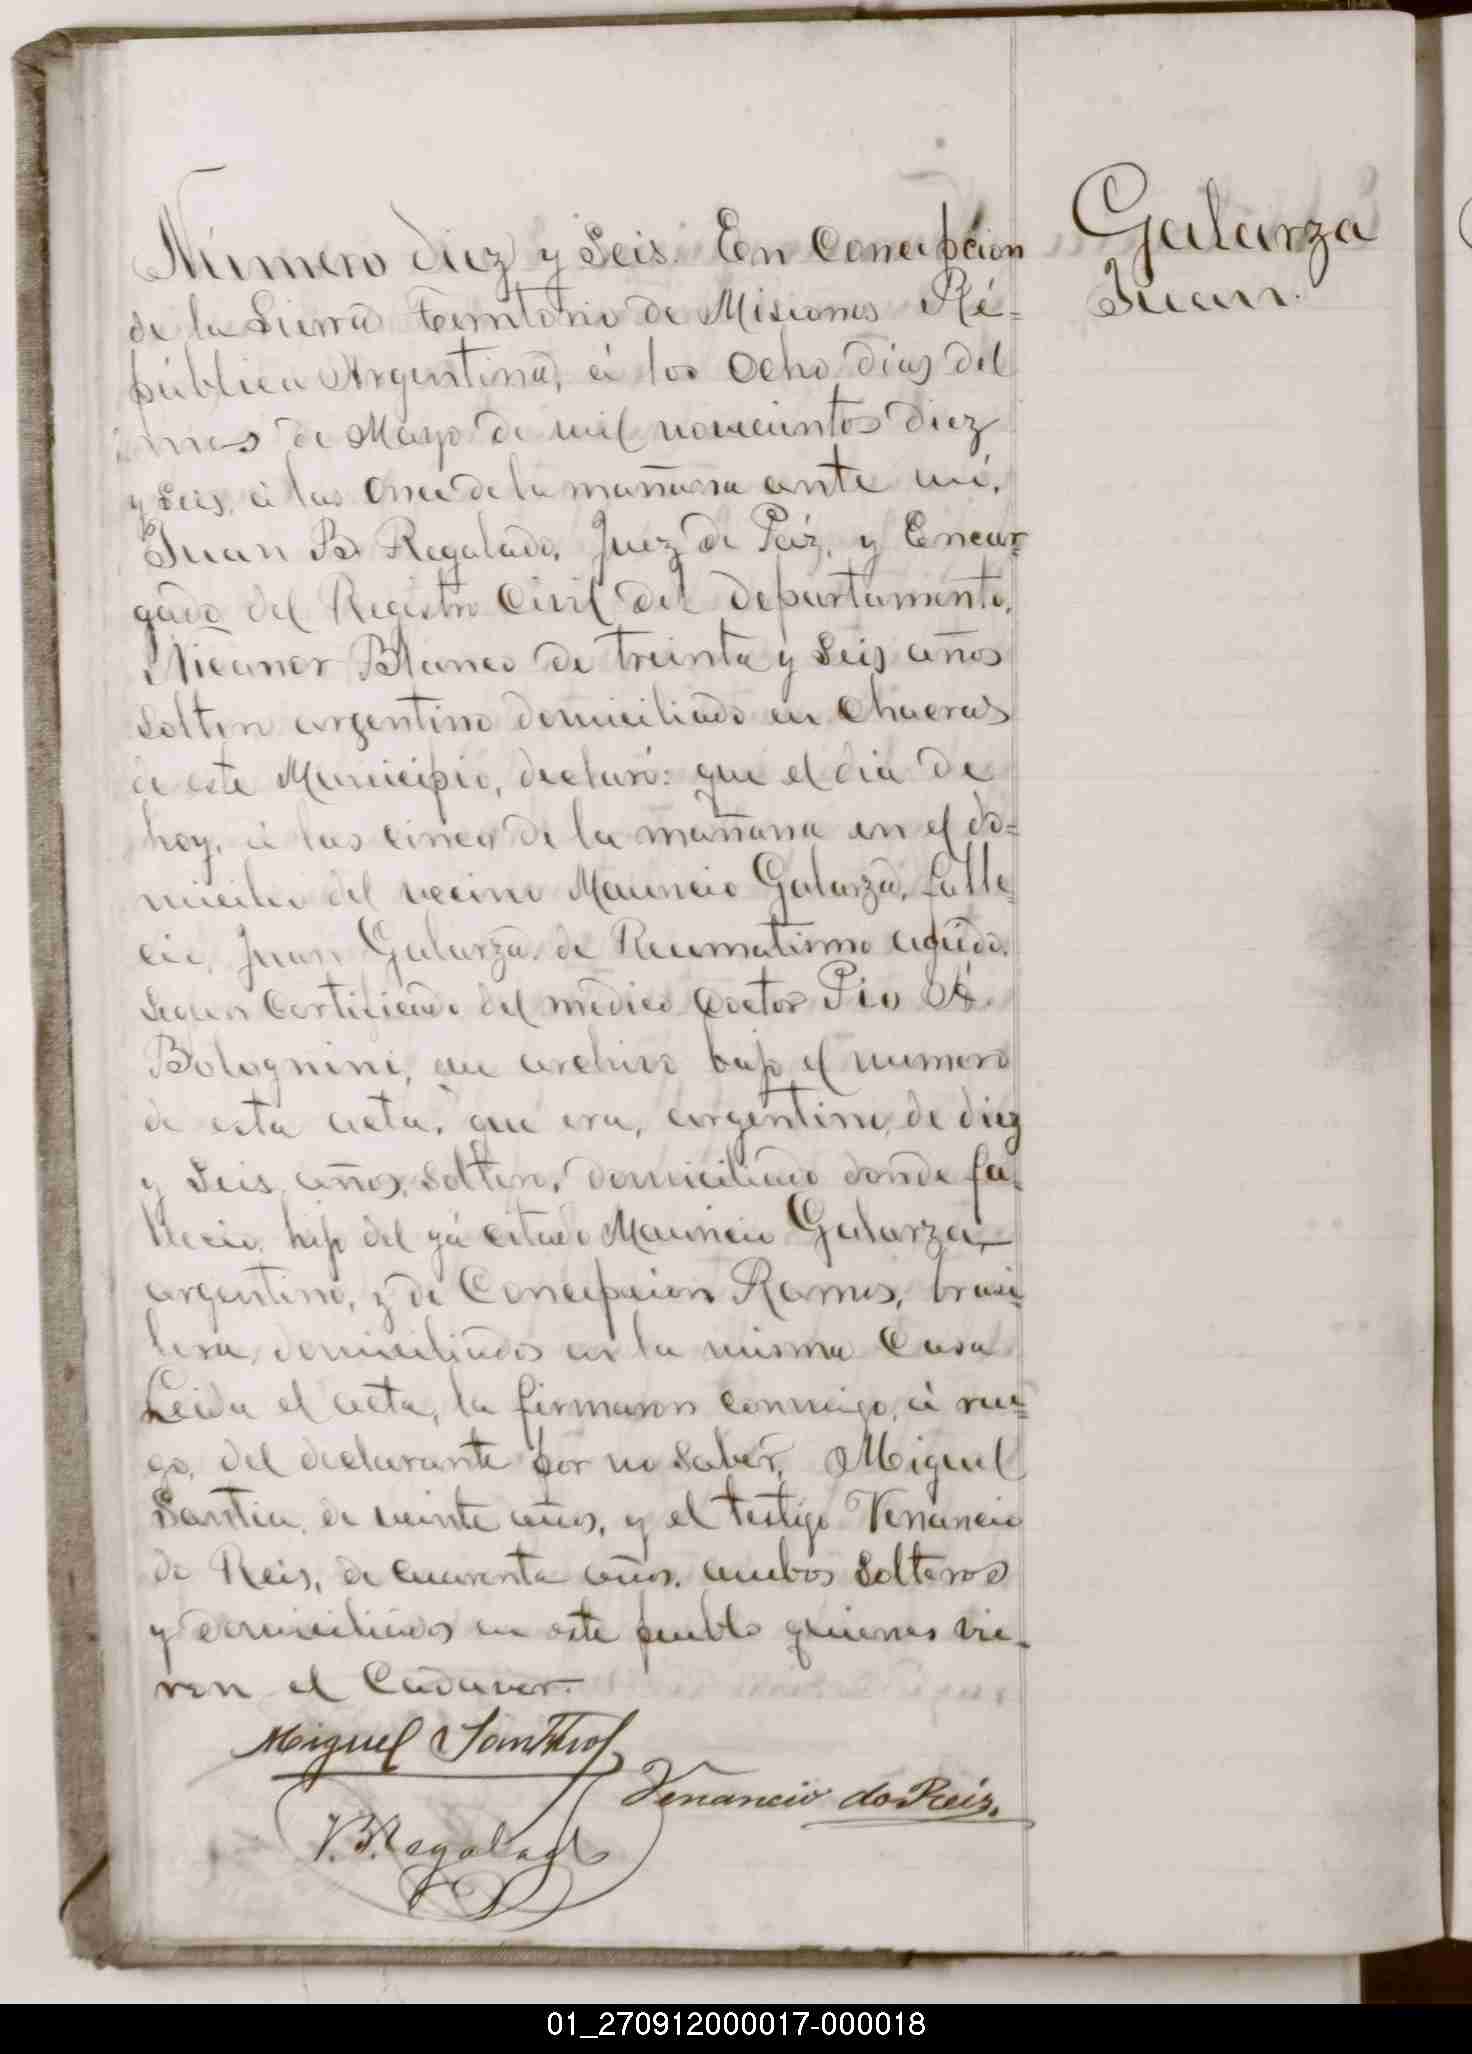 Número diez y Seis. En Concepcion
de la Sierra Territorio de Misiones Ré-
pública Argentina, á los Ocho dias del
mes de Mayo de mil novecientos diez
y seis, á las Once de la mañana ante mí,
Juan B. Regalado, Juez de Páz, y Encar-
gado del Registro Civil del departamento,
Nicanor Blanco de treinta y Seis años
Soltero argentino domiciliado en Chacras
de este Municipio, declaró: que el dia de
hoy, á las cinco de la mañana en el do-
micilio del vecino Mauricio Galarza, falle-
ció, Juan Galarza, de Reumatismo agudo,
segun Certificado del médico Doctor Pio A.
Bolognini, que archivo bajo el numero
de esta acta, que era, argentino, de diez
y Seis, años, Soltero, domiciliado donde fa-
lleció, hijo del yá citado Mauricio Galarza,
argentino, y de Concepcion Ramos, brasi-
lera, domiciliados en la misma Casa
Leida el acta, la firmaron conmigo, á rue-
go, del declarante por no saber, Miguel
de veinte años, y el testigo Venancio
de Reis, de cuarenta años, ambos Solteros
y domiciliados en este pueblo quienes vie-
ron el Cadaver.
Miguel
Venancio do Reis.
J. B. Regalado
Galarza
Juan.
01_270912000017-000018